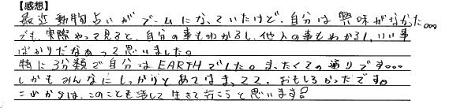 【感想】
最近動物占いがブームになっていたけど、自分は興味がなかった。。。
でも、実際やって見ると、自分の事もわかるし、他人の事もわかるし、いい事
ばかりだなぁって思いました。
特に3分類で自分はEARTHでした。まったくその通りです。。。
しかもみんなにしっかりとあてはまってて、おもしろかったです。
これからは、このことも活して生きて行こうと思います!